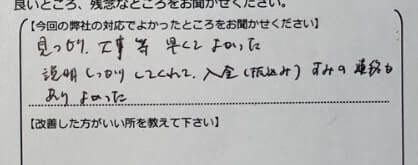 良いところ、残念なところをお聞かせください。
【今回の弊社の対応でよかったところをお聞かせください】
見つもり、工事等 早くて よかった
説明しっかりしてくれて、入金(振込み)すみの連絡も
ありよかった
【改善した方がいい所を教えて下さい】